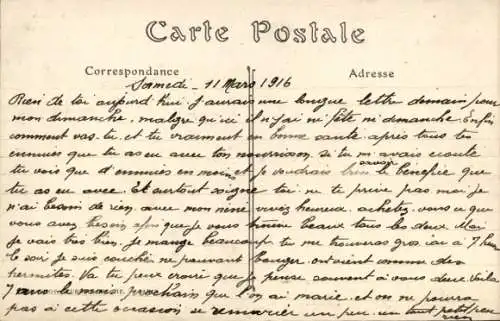 Carte Postale
Correspondance
Adresse
Samedi - 11 Mars 1916
Rien de toi aujourd'hui j'aurais une longue lettre demain pour
mon dimanche. malgré qu'ici il n'y ai ni fête ni dimanche. Enfin
comment vas-tu, et tu vraiment en bonne santé après tous tes
ennuies que tu as eu avec ton nourrisson. si tu m'avais écouté
tu vois que d'ennuies en moins et je voudrais bien avoir le bénéfice que
tu as eu avec. Et surtout soigne toi. ne te prive pas moi je
n'ai besoin de rien, avec mon néné vivez heureux, achetez vous ce que
vous avez besoin afin que je vous trouve beaux tous les deux. Moi
je vais très bien. Je mange beaucoup tu me trouveras gros ici à 7 her
le soir je suis couché ne pouvant bouger, on vient comme des
hermites. Va tu peux croire que je pense souvent à vous deux. Voila
7 ans le mois prochain que l'on ai marié, et on ne pourra
pas à cette occasion se remarier un peu, un tout petit peu
rien